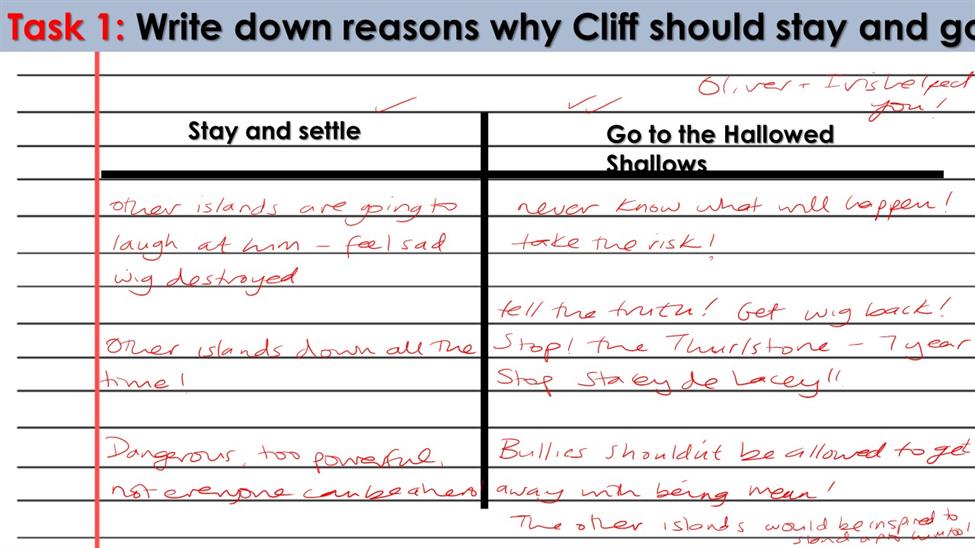 Task 1: Write down reasons why Cliff should stay and go
Oliver + Iris helped
you!
Stay and settle
other islands are going to
laugh at him – feel sad
wig destroyed
Other islands down all the
time!
Dangerous, too powerful,
not everyone can be a hero!
Go to the Hallowed
Shallows
never know what will happen!
take the risk!
tell the truth! Get wig back!
Stop! the Thurlstone – 7 year
Stop Stacey de Lacey!!
Bullies shouldn't be allowed to get
away with being mean!
The other islands would be inspired to
stand up to